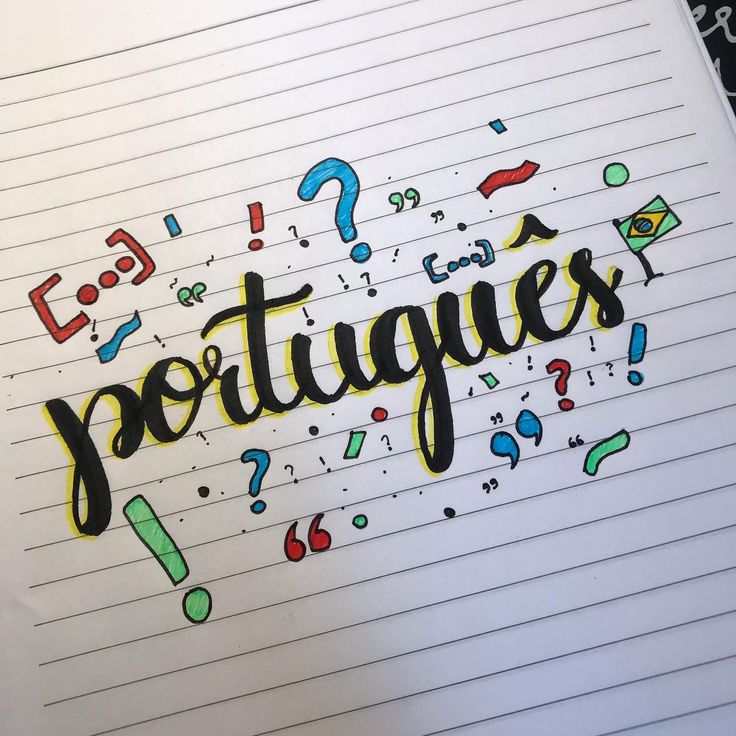 português